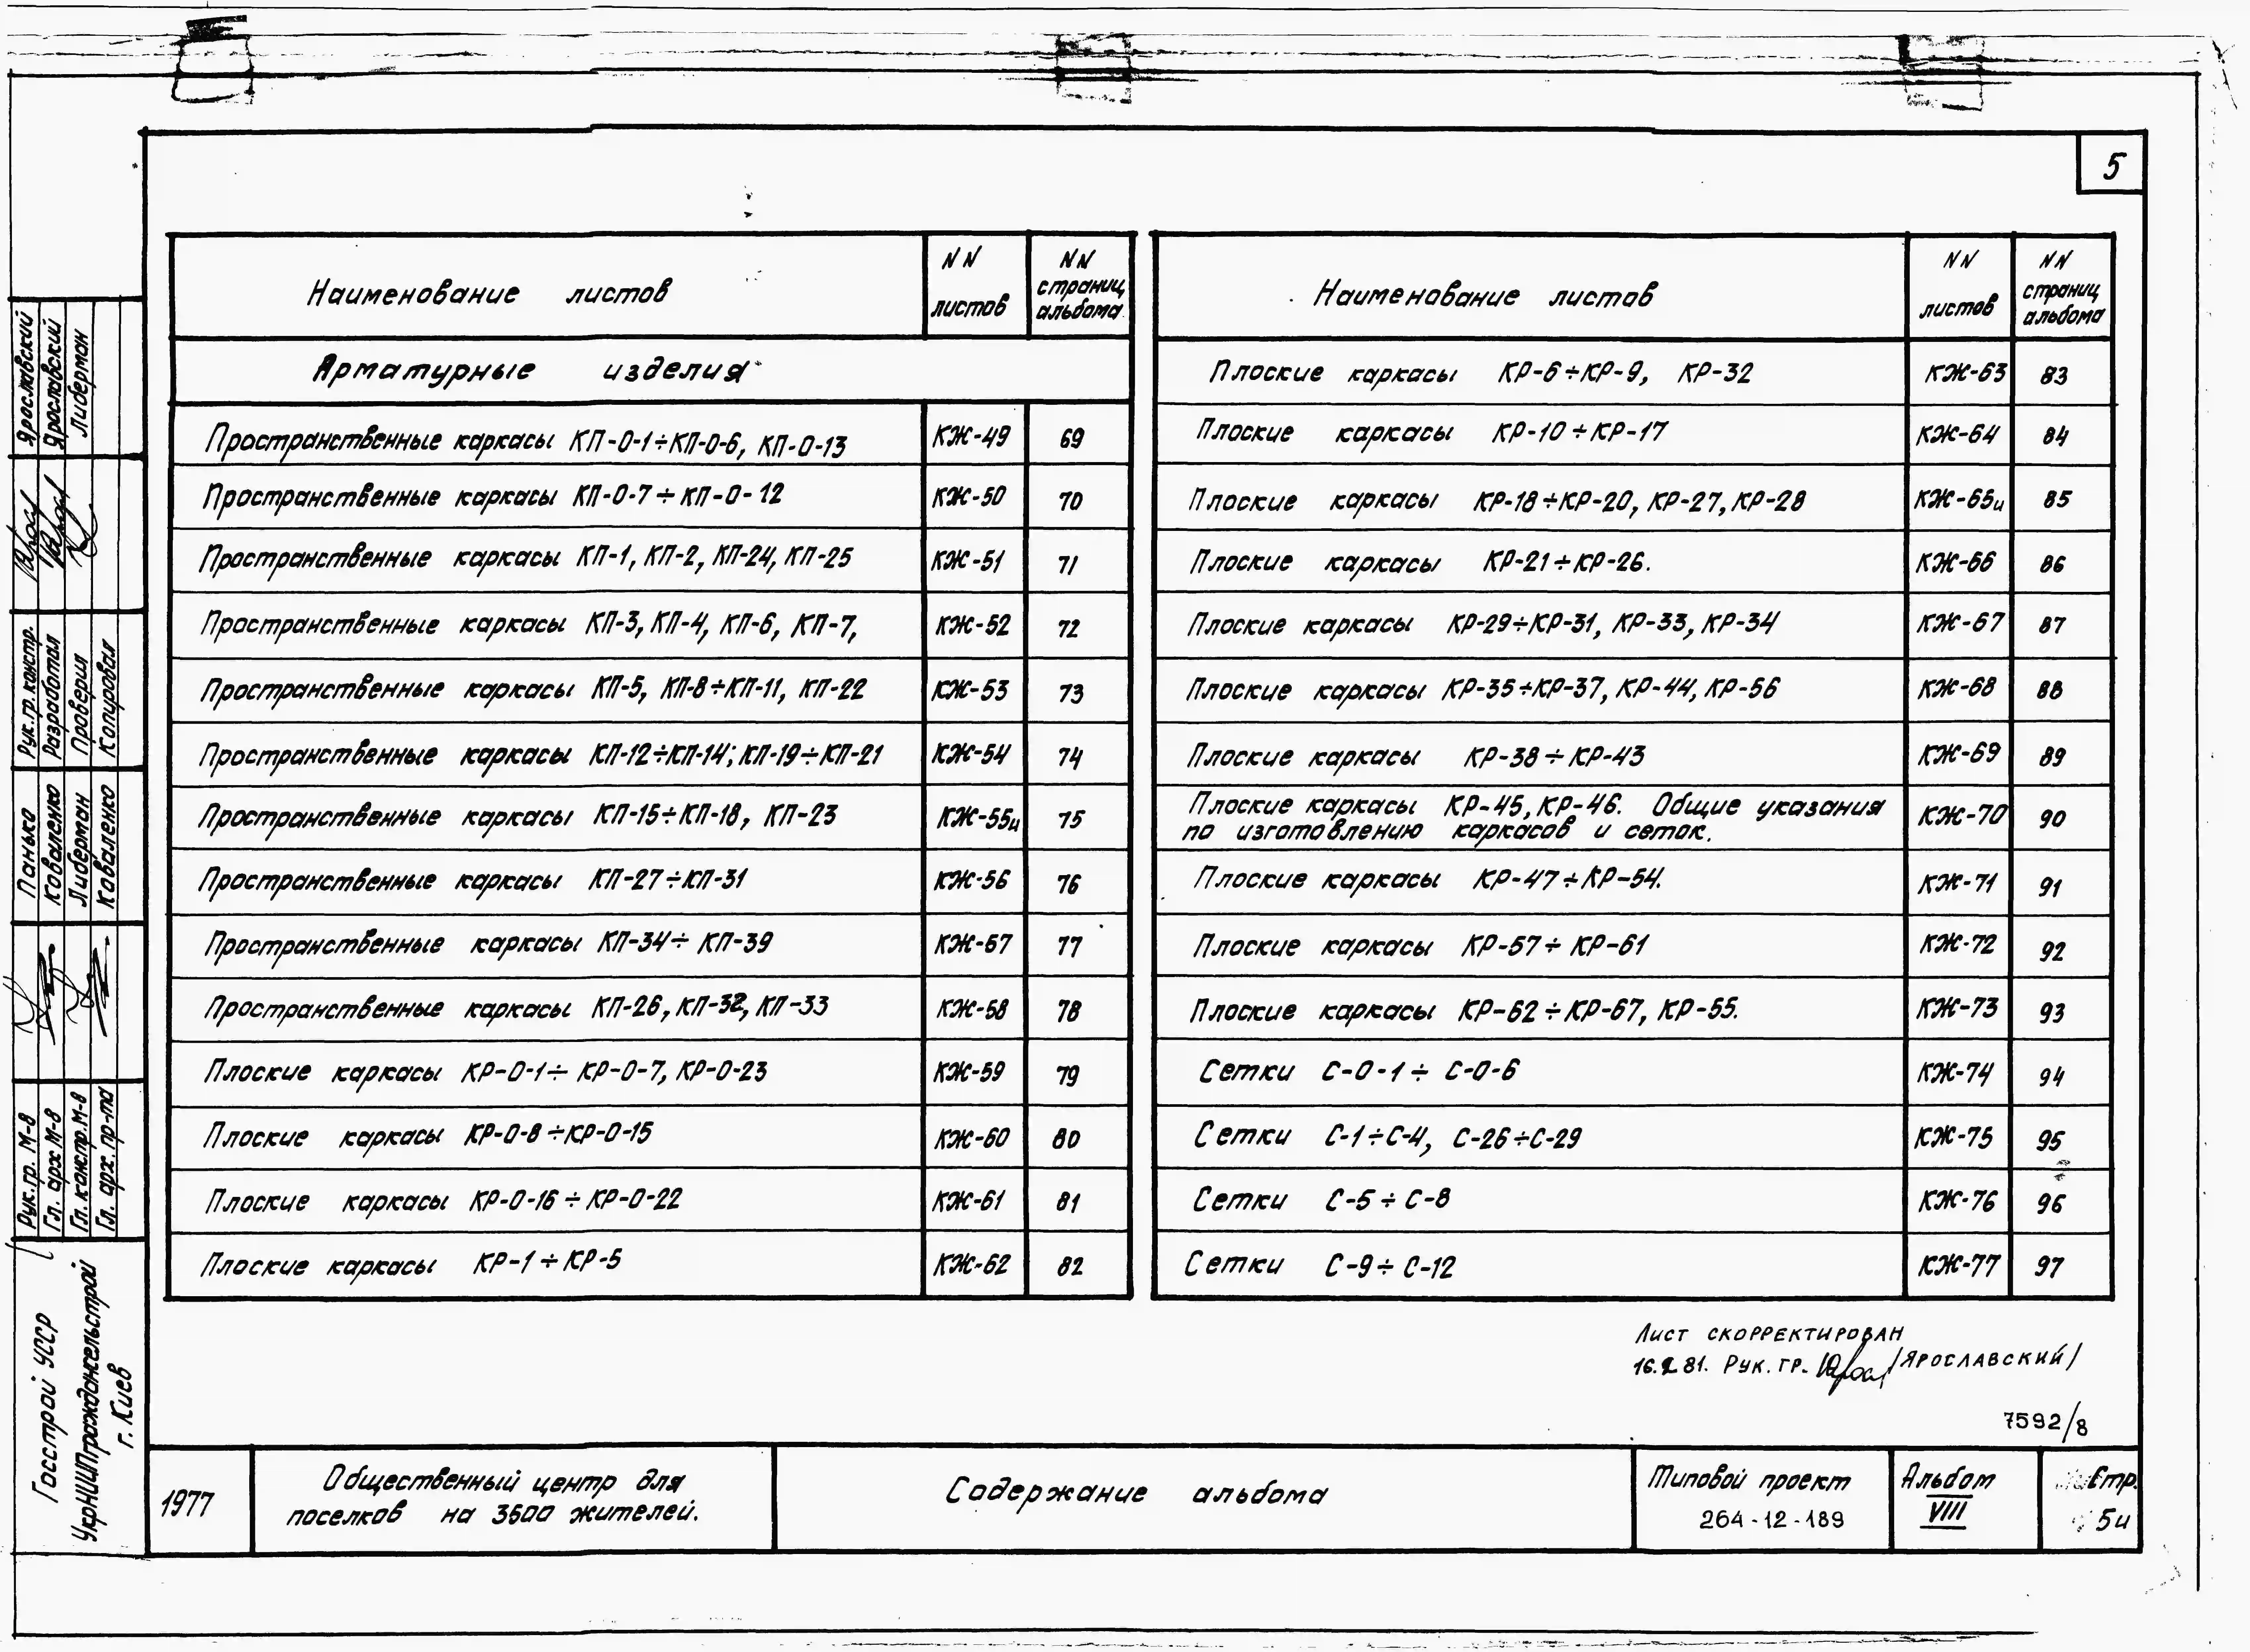 5
Наименование листов
NN листов
NN страниц альбома
Арматурные изделия
Пространственные каркасы КП-0-1÷КП-0-6, КП-0-13 КЖ-49 69
Пространственные каркасы КП-0-7÷КП-0-12 КЖ-50 70
Пространственные каркасы КП-1, КП-2, КП-24, КП-25 КЖ-51 71
Пространственные каркасы КП-3, КП-4, КП-6, КП-7, КЖ-52 72
Пространственные каркасы КП-5, КП-8÷КП-11, КП-22 КЖ-53 73
Пространственные каркасы КП-12÷КП-14; КП-19÷КП-21 КЖ-54 74
Пространственные каркасы КП-15÷КП-18, КП-23 КЖ-55и 75
Пространственные каркасы КП-27÷КП-31 КЖ-56 76
Пространственные каркасы КП-34÷КП-39 КЖ-57 77
Пространственные каркасы КП-26, КП-32, КП-33 КЖ-58 78
Плоские каркасы КР-0-1÷КР-0-7, КР-0-23 КЖ-59 79
Плоские каркасы КР-0-8÷КР-0-15 КЖ-60 80
Плоские каркасы КР-0-16÷КР-0-22 КЖ-61 81
Плоские каркасы КР-1÷КР-5 КЖ-62 82
Наименование листов
NN листов
NN страниц альбома
Плоские каркасы КР-6÷КР-9, КР-32 КЖ-63 83
Плоские каркасы КР-10÷КР-17 КЖ-64 84
Плоские каркасы КР-18÷КР-20, КР-27, КР-28 КЖ-65и 85
Плоские каркасы КР-21÷КР-26. КЖ-66 86
Плоские каркасы КР-29÷КР-31, КР-33, КР-34 КЖ-67 87
Плоские каркасы КР-35÷КР-37, КР-44, КР-56 КЖ-68 88
Плоские каркасы КР-38÷КР-43 КЖ-69 89
Плоские каркасы КР-45, КР-46. Общие указания
по изготовлению каркасов и сеток. КЖ-70 90
Плоские каркасы КР-47÷КР-54. КЖ-71 91
Плоские каркасы КР-57÷КР-61 КЖ-72 92
Плоские каркасы КР-62÷КР-67, КР-55. КЖ-73 93
Сетки С-0-1÷С-0-6 КЖ-74 94
Сетки С-1÷С-4, С-26÷С-29 КЖ-75 95
Сетки С-5÷С-8 КЖ-76 96
Сетки С-9÷С-12 КЖ-77 97
Лист скорректирован
81. Рук. гр. /Ярославский/
7592/8
1977
Общественный центр для
поселков на 3600 жителей.
Содержание альбома
Типовой проект
264-12-189
Альбом
VIII
Стр.
5и
Ярославский
Ярославский
Либерман
Рук. гр. констр.
Разработал
Проверил
Копировал
Панько
Коваленко
Либерман
Коваленко
Рук. гр. М-8
Гл. арх М-8
Гл. констр. М-8
Гл. арх. пр-та
Госстрой УССР
УкрНИИПграждансельстрой
г. Киев